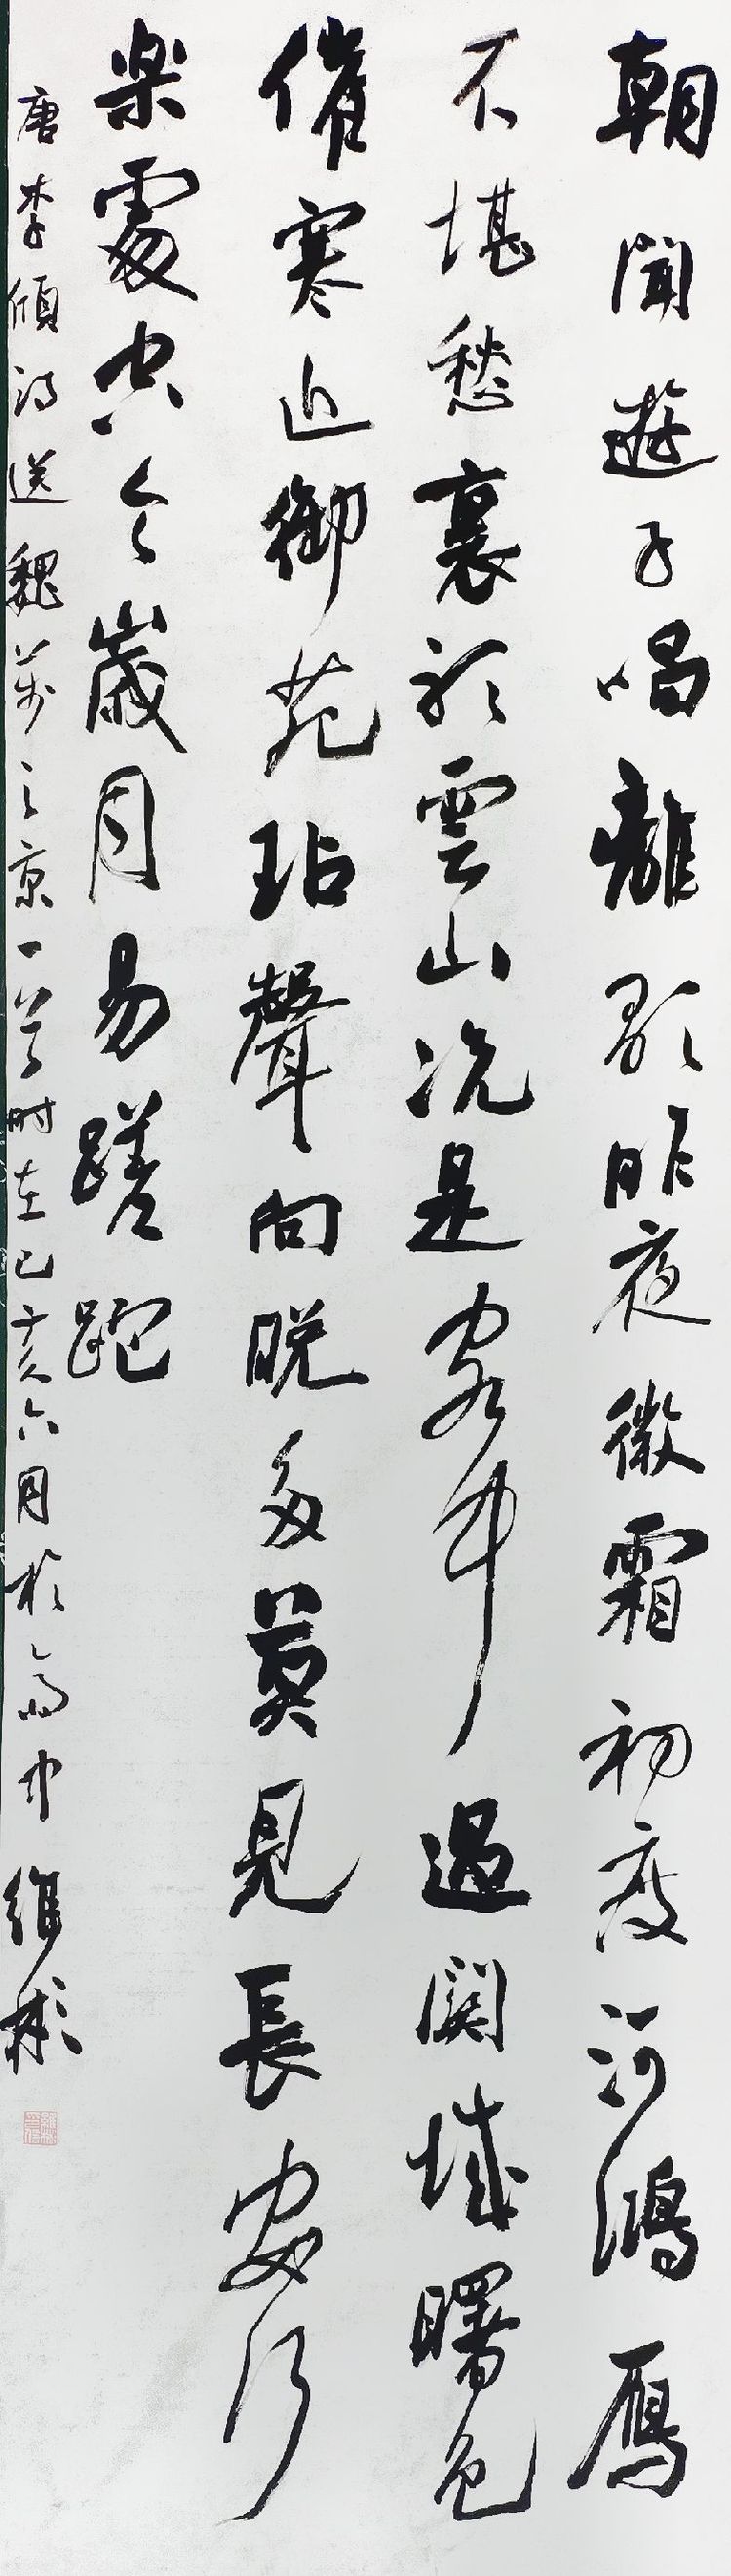 朝聞遊子唱離歌昨夜微霜初度河鴻鴈
不堪愁裏聽雲山况是客中過關城曙色
催寒近御苑砧聲向晚多莫見長安行
楽處空令歲月易蹉跎
唐李頎詩送魏萬之京一首时在己亥六月於中維彬